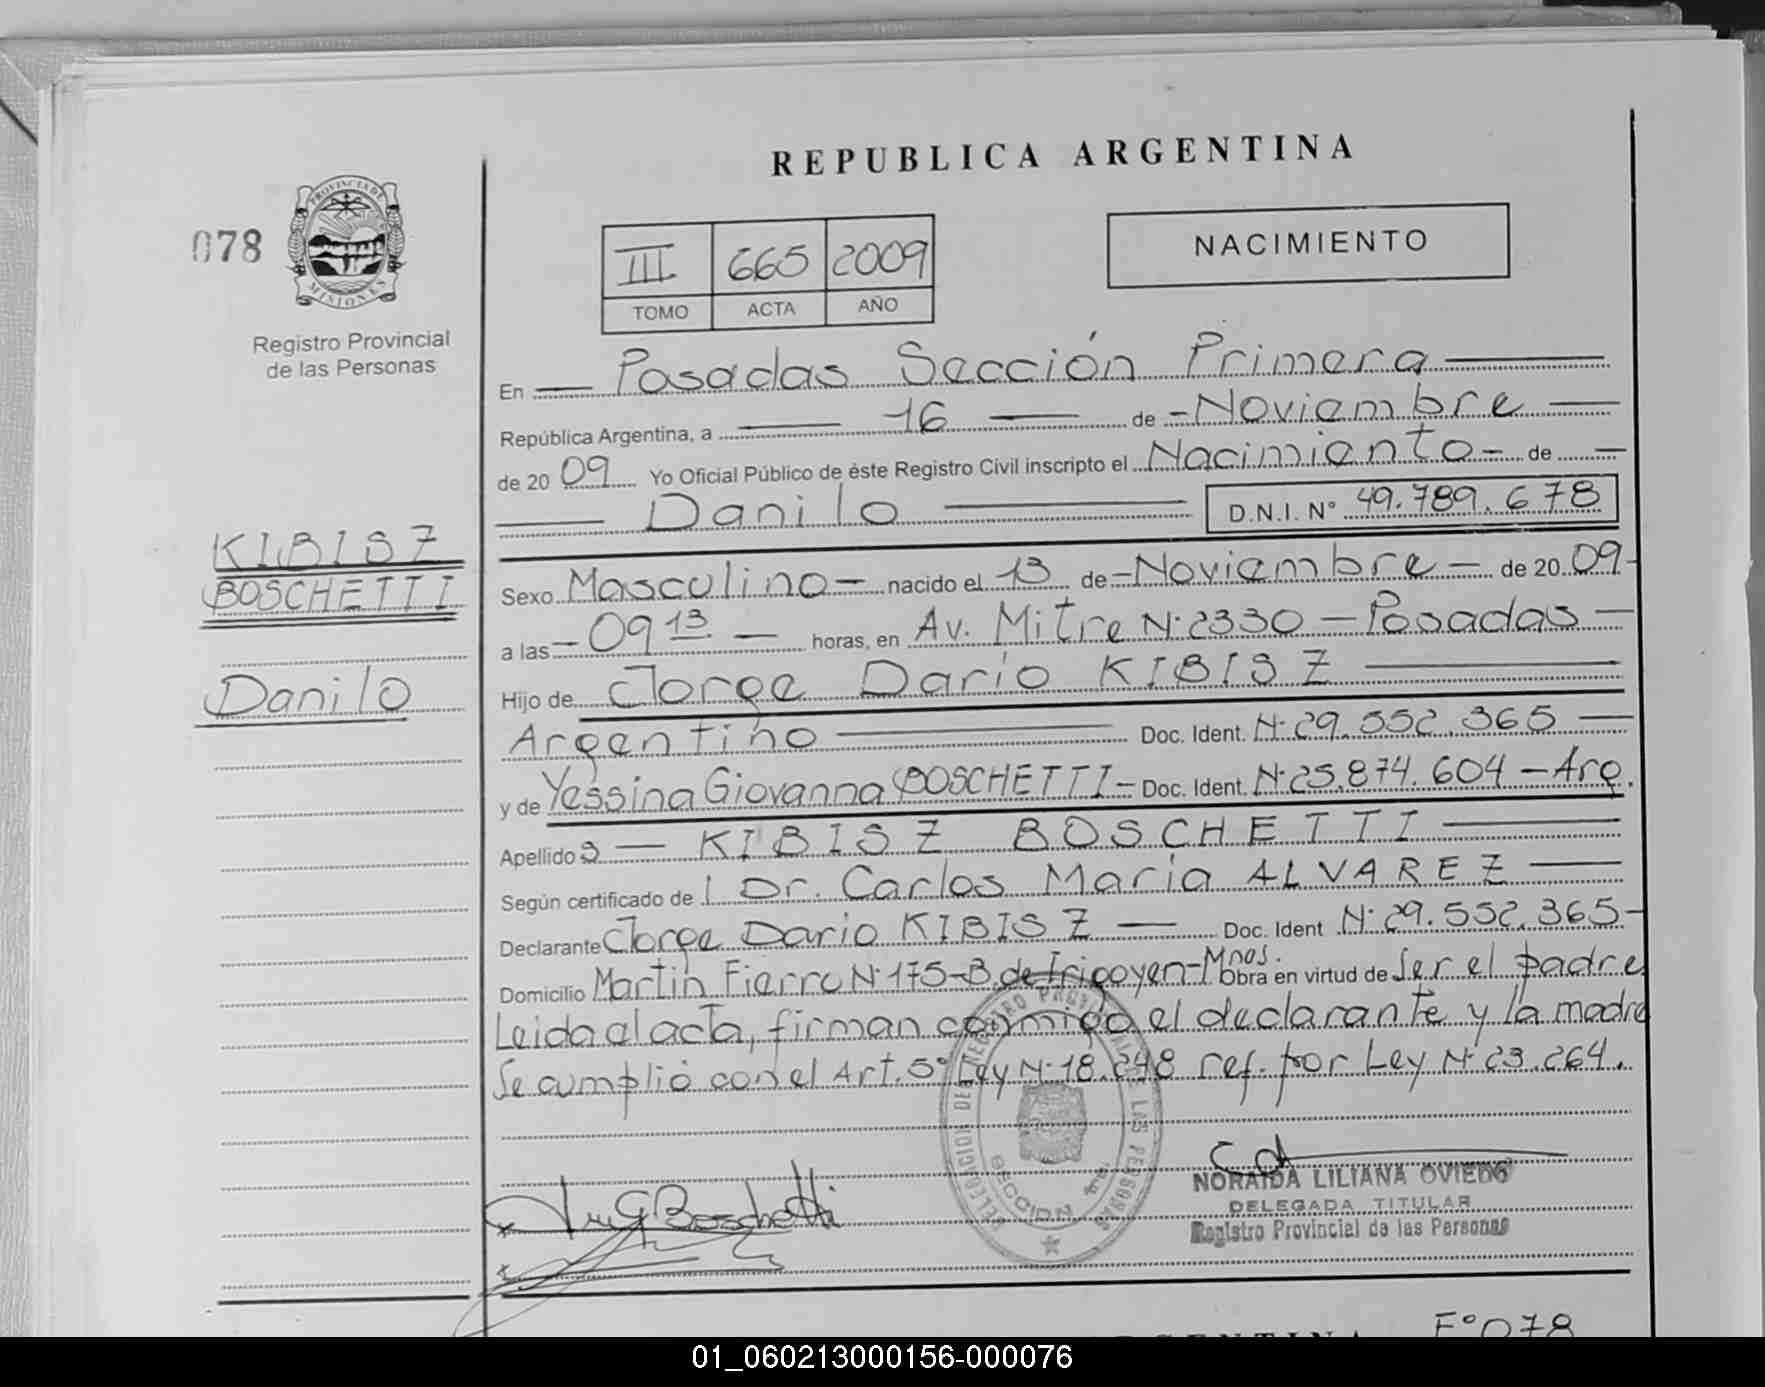 REPUBLICA ARGENTINA
078
PROVINCIA DE
MISIONES
Registro Provincial
de las Personas
III 665 2009
TOMO ACTA AÑO
NACIMIENTO
En Posadas Sección Primera
República Argentina, a 16 de Noviembre
de 2009 Yo Oficial Público de éste Registro Civil inscripto el Nacimiento de
Danilo D.N.I. N° 49.789.678
KIBISZ
BOSCHETTI
Danilo
Sexo Masculino nacido el 13 de Noviembre de 2009
a las 09 13 horas, en Av. Mitre N° 2330 - Posadas
Hijo de Jorge Dario KIBISZ
Argentino Doc. Ident. N° 29.552.365
y de Yessina Giovanna BOSCHETTI - Doc. Ident. N° 25.874.604 - Arg.
Apellidos KIBISZ BOSCHETTI
Según certificado de l Dr. Carlos María ALVAREZ
Declarante Jorge Dario KIBISZ Doc. Ident N° 29.552.365
Domicilio Martin Fierro N° 175-B. de Irigoyen-Mnes. Obra en virtud de Ser el padre
Leida el acta, firman conmigo el declarante y la madre
Se cumplió con el Art. 5° Ley N° 18.248 ref. por Ley N° 23.264.
DELEGACION DEL REGISTRO PROVINCIAL DE LAS PERSONAS
SECCION 1ª
Boschetti
NORAIDA LILIANA OVIEDO
DELEGADA TITULAR
Registro Provincial de las Personas
F° 078
01_060213000156-000076